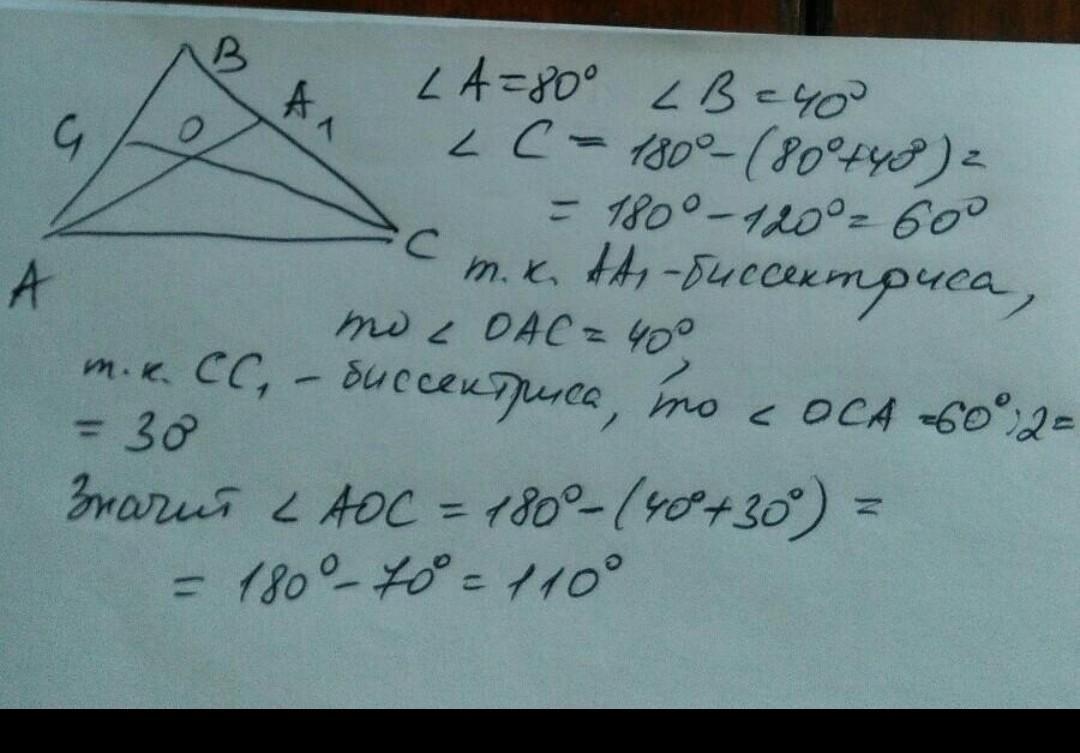 B
A₁
C₁ O
A
C
∠A=80° ∠B=40°
∠C=180°-(80°+40°)=
=180°-120°=60°
т.к. AA₁-биссектриса,
то ∠OAC=40°,
т.к. CC₁-биссектриса, то ∠OCA=60°:2=
=30°
Значит ∠AOC=180°-(40°+30°)=
=180°-70°=110°